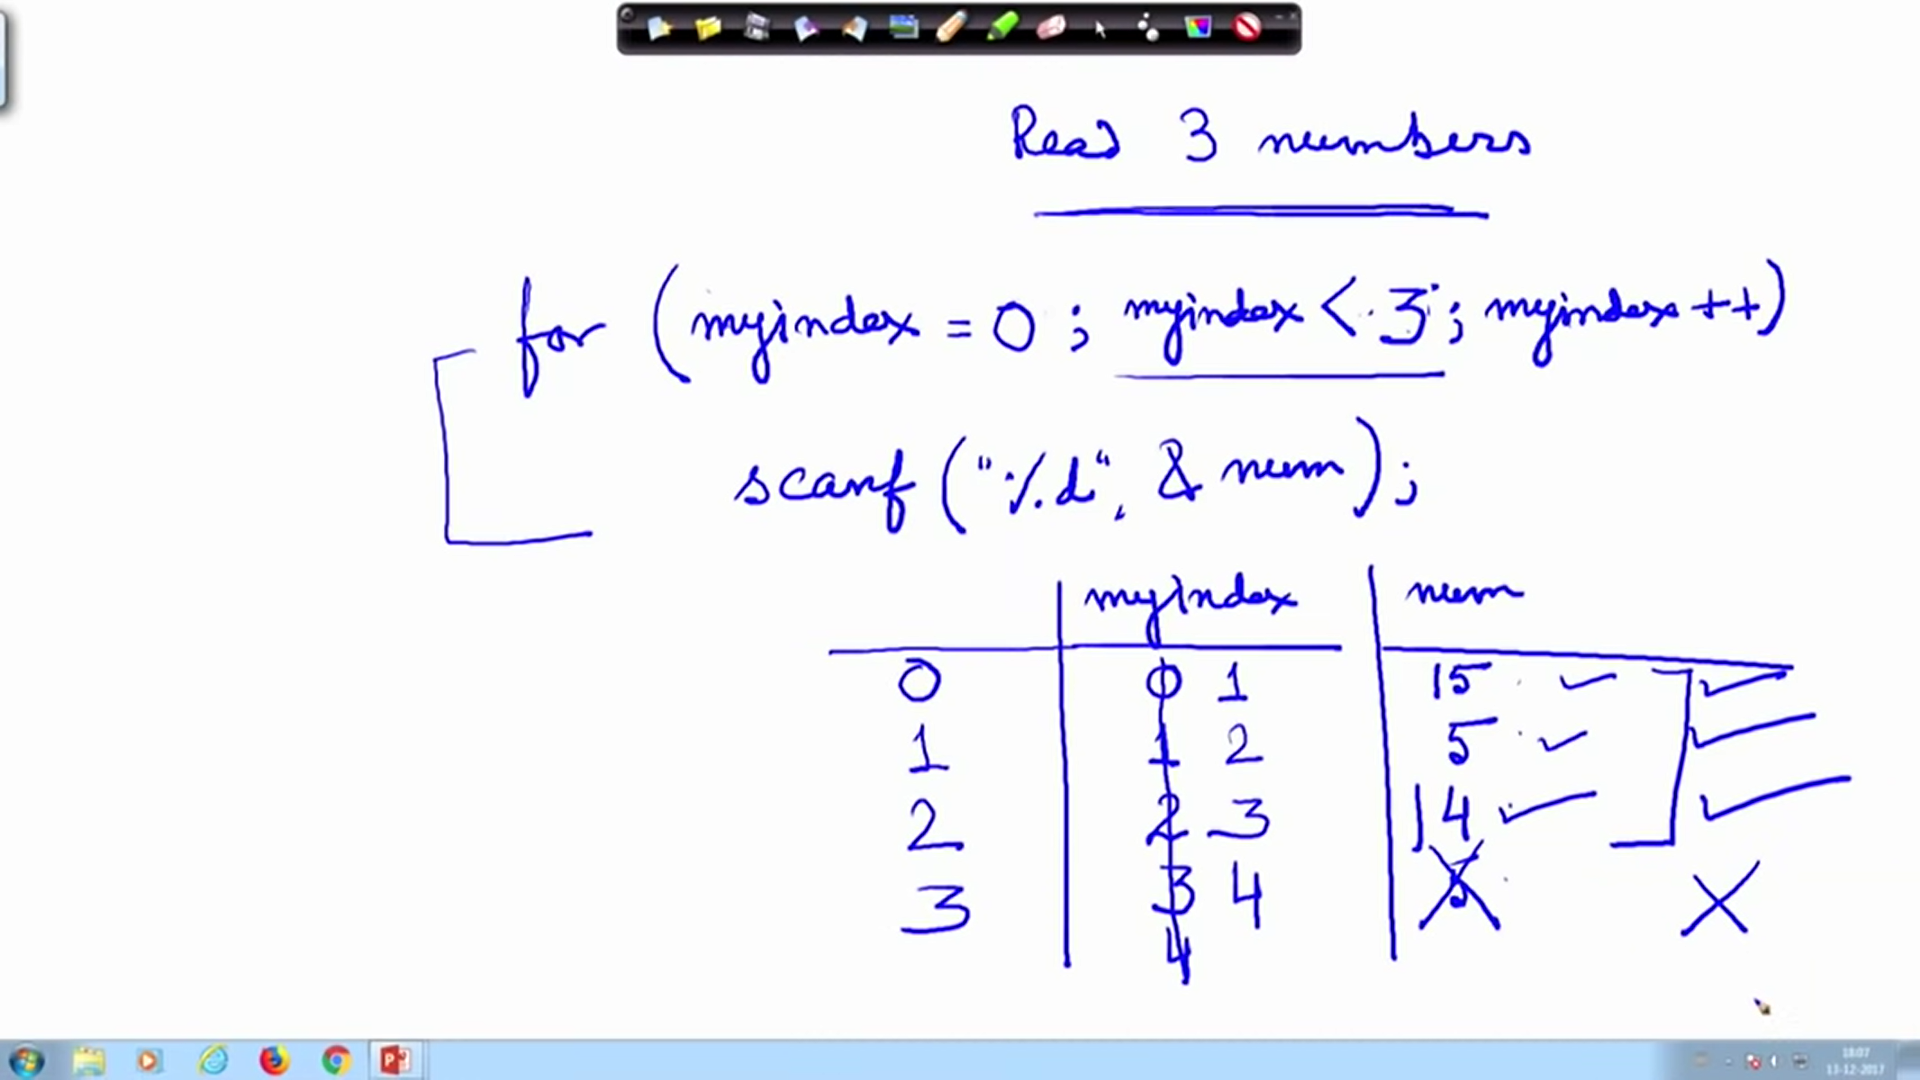 Read 3 numbers
for (myindex = 0 ; myindex < 3 ; myindex ++)
scanf ("%d", & num);
myindex num
0 0 1 15
1 1 2 5
2 2 3 14
3 3 4
4
18:07
13-12-2017